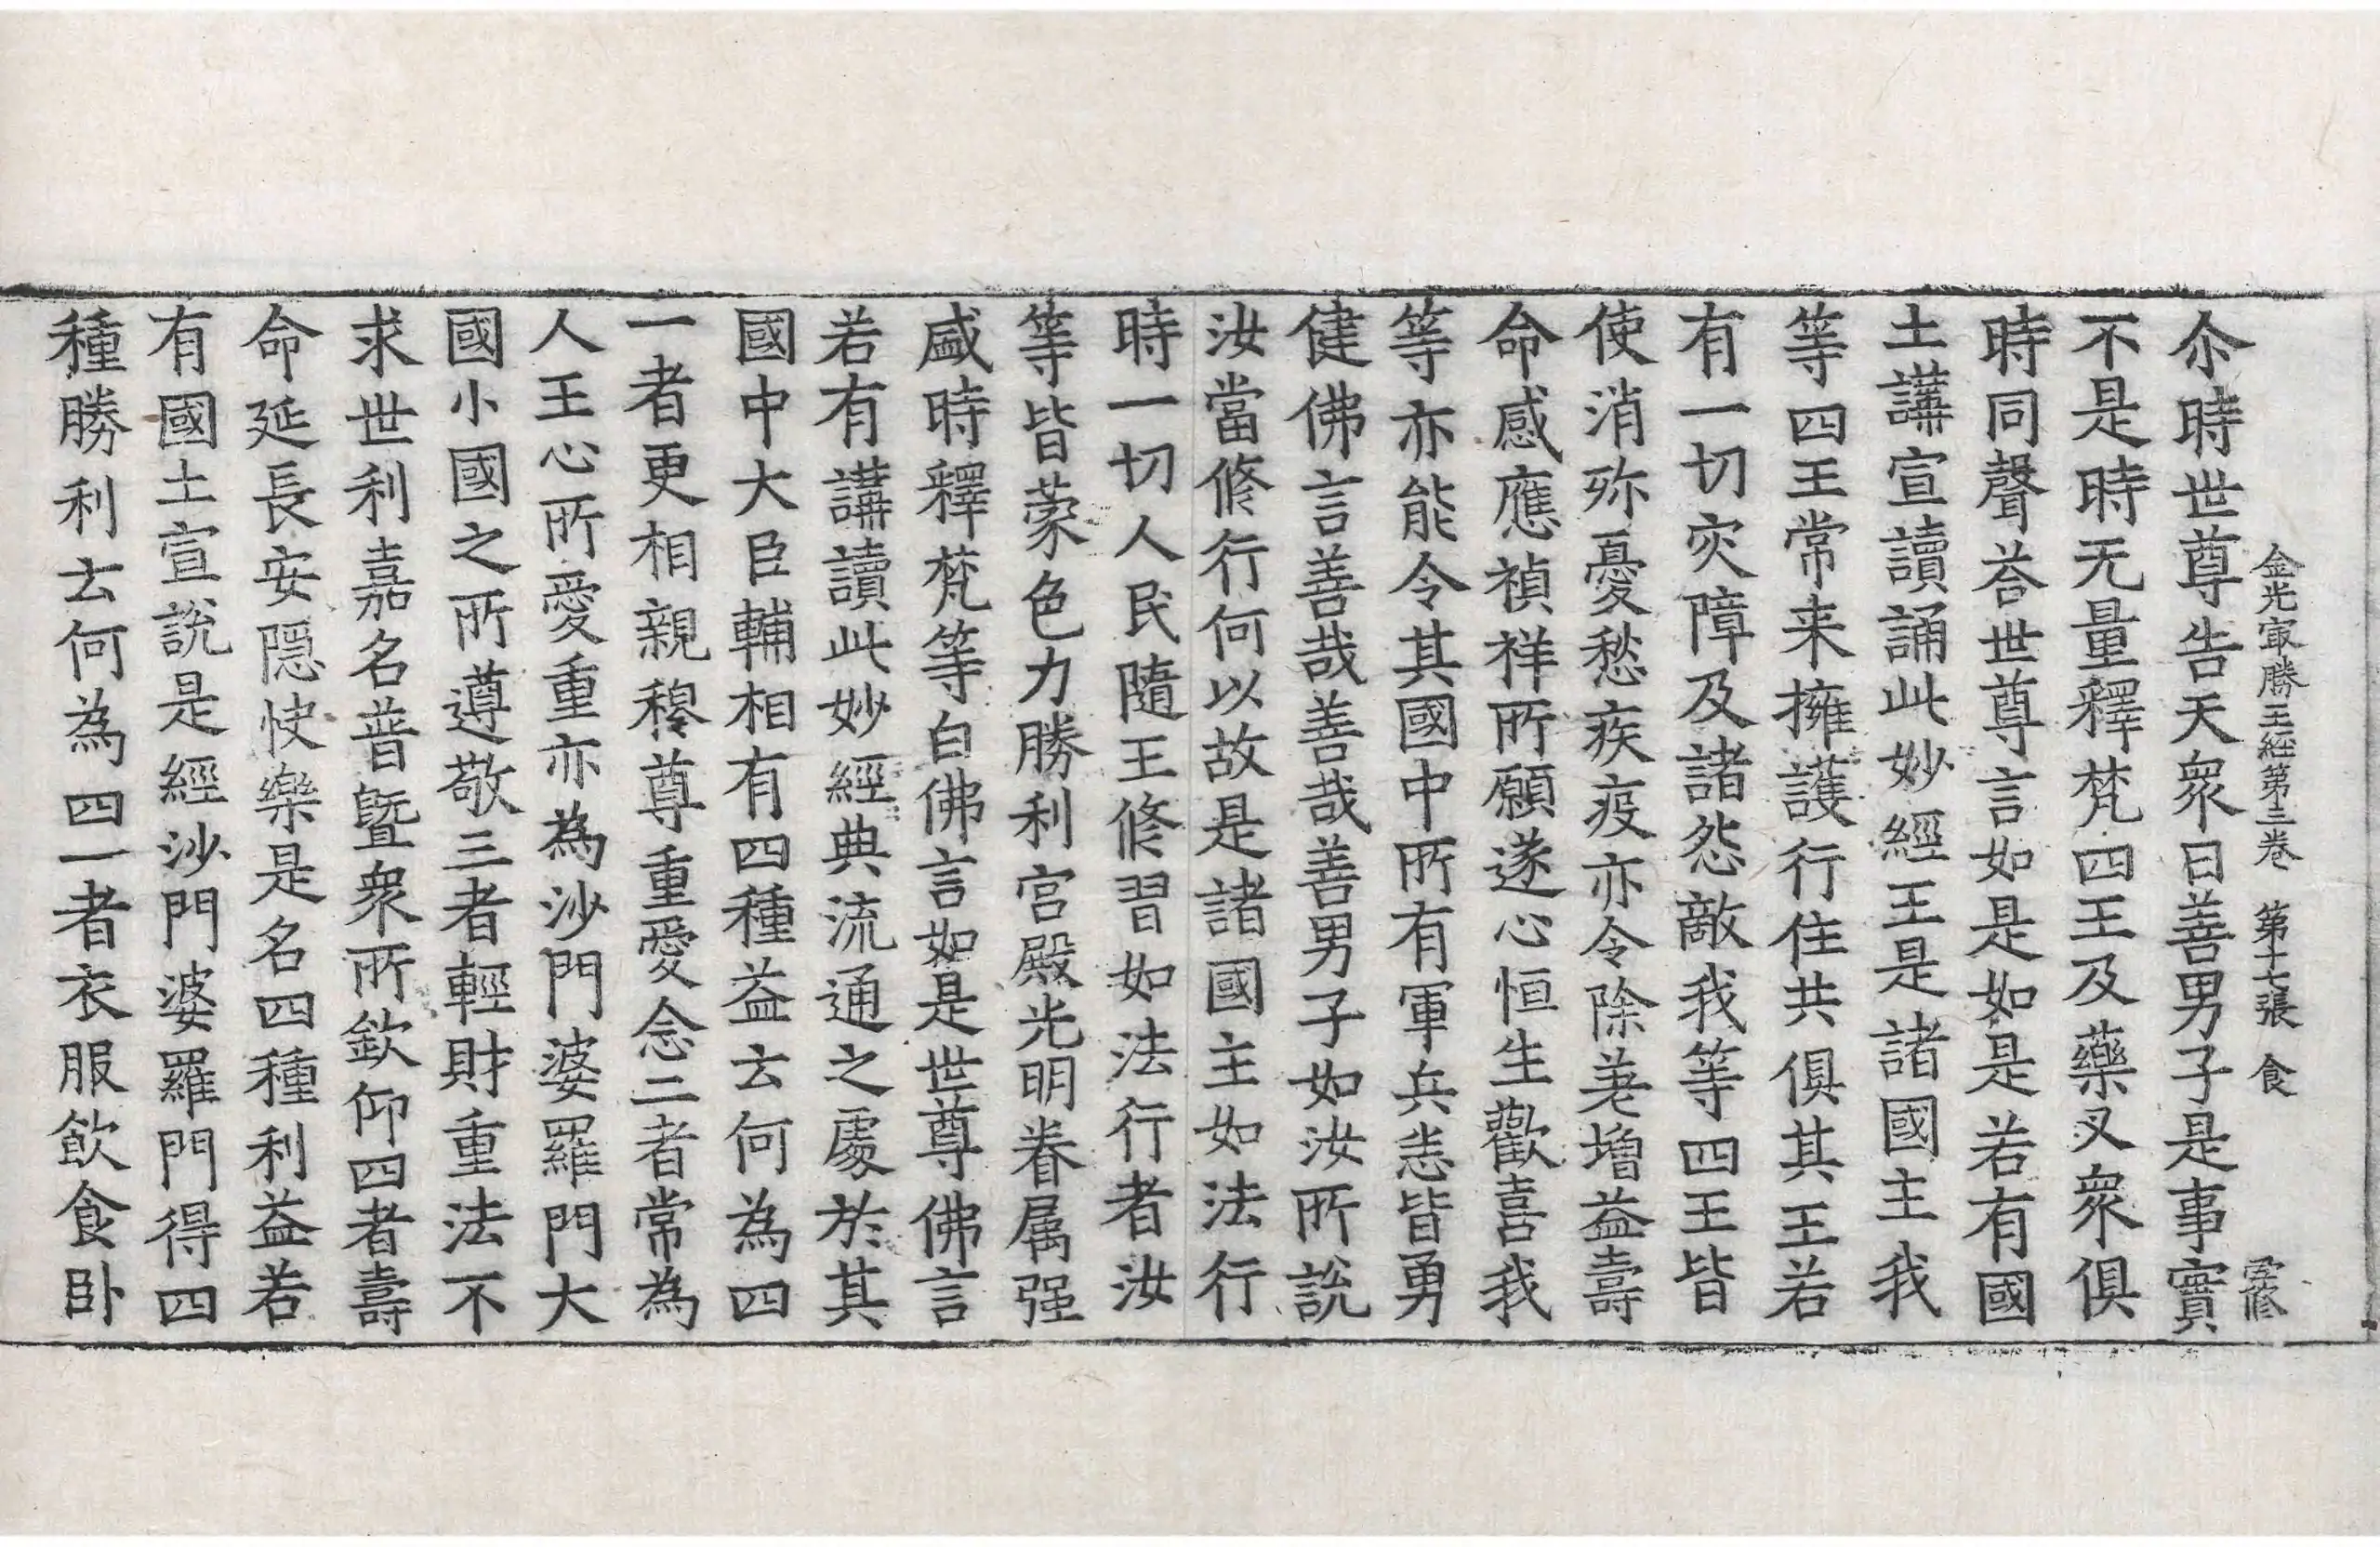 金光冣勝王經第三卷 第十七張 食
尒時世尊告天衆曰善男子是事實
不是時无量釋梵四王及藥叉衆俱
時同聲荅世尊言如是如是若有國
土講宣讀誦此妙經王是諸國主我
等四王常来擁護行住共俱其王若
有一切灾障及諸怨敵我等四王皆
使消殄憂愁疾疫亦令除差增益壽
命感應禎祥所願遂心恒生歡喜我
等亦能令其國中所有軍兵悉皆勇
健佛言善哉善哉善男子如汝所說
汝當修行何以故是諸國主如法行
時一切人民隨王修習如法行者汝
等皆蒙色力勝利宮殿光明眷属强
盛時釋梵等白佛言如是世尊佛言
若有講讀此妙經典流通之處於其
國中大臣輔相有四種益云何為四
一者更相親穆尊重愛念二者常為
人王心所愛重亦為沙門婆羅門大
國小國之所遵敬三者輕財重法不
求世利嘉名普曁衆所欽仰四者壽
命延長安隠快樂是名四種利益若
有國土宣說是經沙門婆羅門得四
種勝利云何為四一者衣服飲食卧